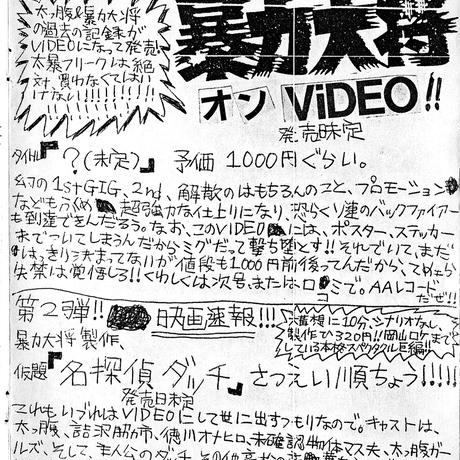 太っ腹&暴力大将
の過去の記録が
VIDEOになって発売
太暴フリークは絶
対、買わなくてはい
けない!!!!!!
暴力大将
オン ViDEO!!
発売日未定
タイトル『?(未定)』 予価 1000円ぐらい。
幻の1st GIG、2nd、解散のはもちろんのこと、プロモーション
なども 超強力な仕上りになり、恐らくソ連のバックファイアー
も到達できんだろう。なお、このVIDEOには、ポスター、ステッカー
までついてしまうんだからミグだって撃ち墜とす!!それでいて、まだ
はっきり決まってないが値段も1,000円前後ってんだから、てめェら
失禁は覚悟しろ!!くわしくは次号、またはロコミで。AAレコード
だぜ!!
第2弾!! 映画速報!!!
構想に10分、シナリオなし、
製作ひ320円!!岡山ロケまで
している本格スペクタクル巨編!!
暴力大将 製作、
仮題『名探偵ダッチ』さつえい順ちょう!!!!!
発売日未定
これもいづれはVIDEOにして世に出すつもりなので。キャストは、
太っ腹、詰沢脇市、徳川オナヒロ、未確認物体マス夫、太っ腹ガー
ルズ、そして、主人公のダッチ、その他